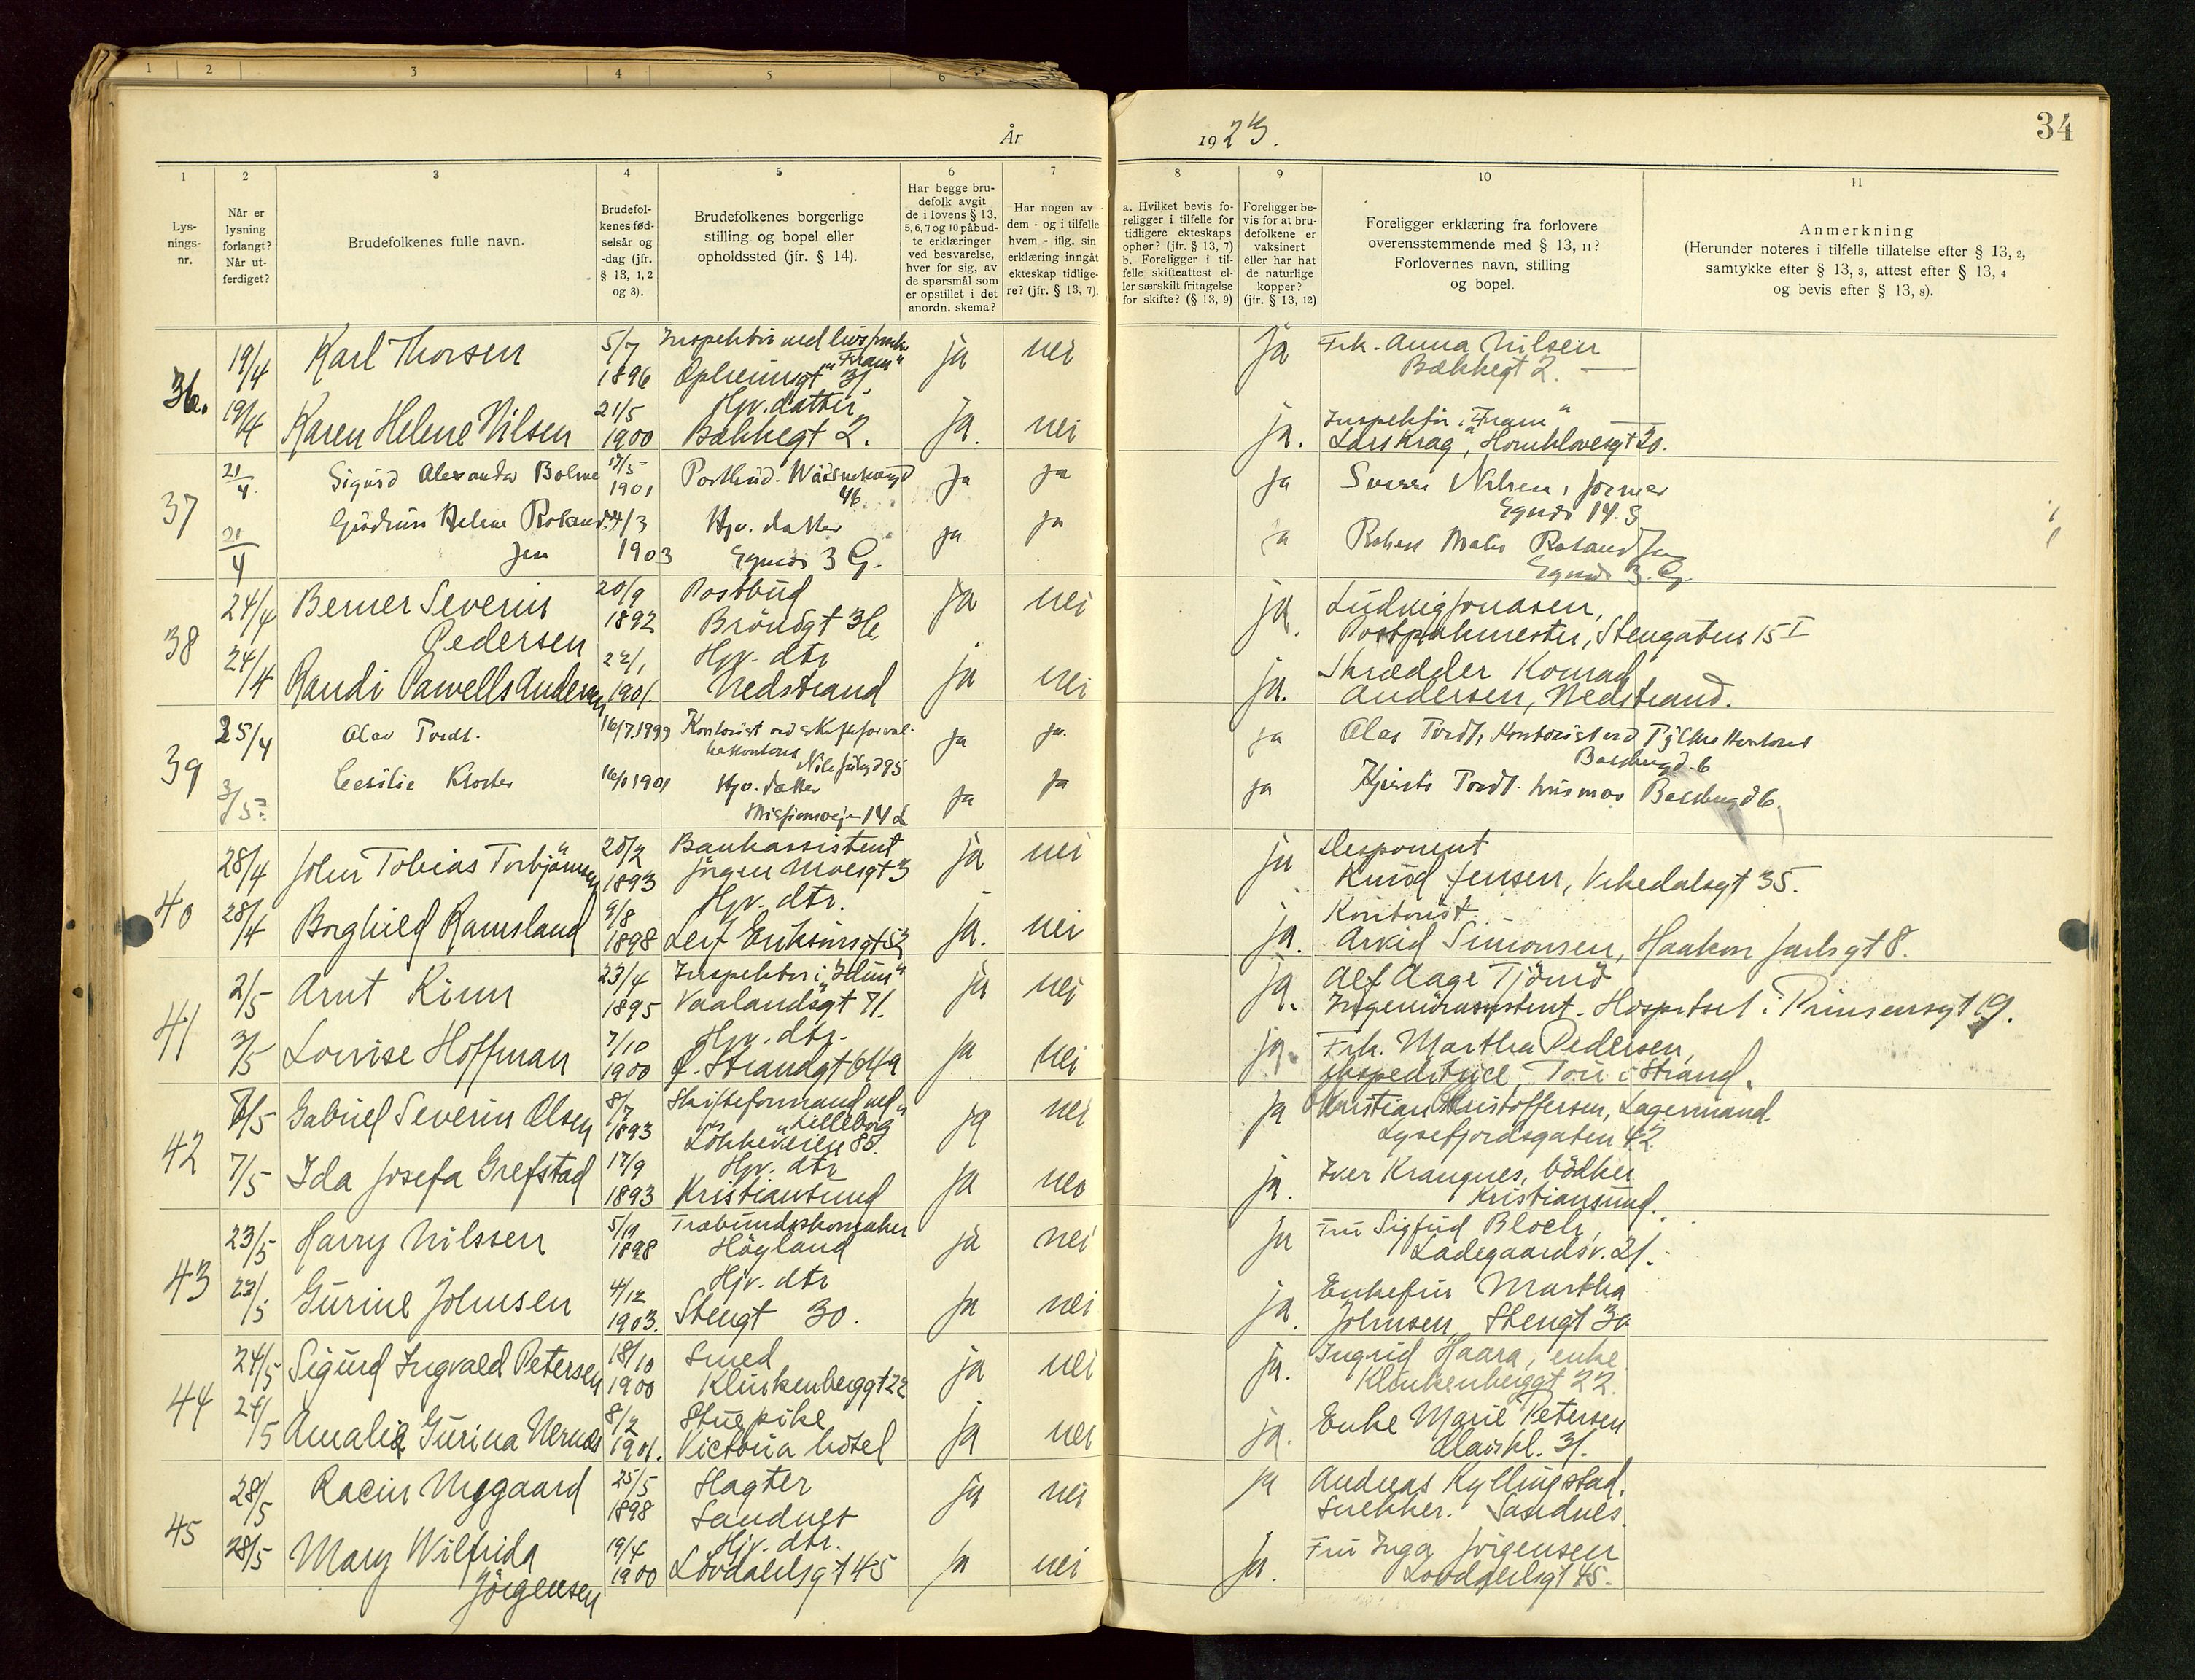 1 2 3 4 5 6
År 1923.
34
1 2 3 4 5 6 7 8 9 10 11
Lys-
nings-
nr.
Når er
lysning
forlangt?
Når ut-
ferdiget?
Brudefolkenes fulle navn.
Brudefol-
kenes fød-
selsår og
-dag (jfr.
§ 13, 1, 2
og 3).
Brudefolkenes borgerlige
stilling og bopel eller
opholdssted (jfr. § 14).
Har begge bru-
defolk avgit
de i lovens § 13,
5, 6, 7 og 10 påbud-
te erklæringer
ved besvarelse,
hver for sig, av
de spørsmål som
er opstillet i det
anordn. skema?
Har nogen av
dem - og i tilfelle
hvem - iflg. sin
erklæring inngåt
ekteskap tidlige-
re? (jfr. § 13, 7).
a. Hvilket bevis fo-
religger i tilfelle for
tidligere ekteskaps
ophør? (jfr. § 13, 7)
b. Foreligger i til-
felle skifteattest el-
ler særskilt fritagelse
for skifte? (§ 13, 9)
Foreligger be-
vis for at bru-
defolkene er
vaksinert
eller har hat
de naturlige
kopper?
(jfr. § 13, 12)
Foreligger erklæring fra forlovere
overensstemmende med § 13, 11?
Forlovernes navn, stilling
og bopel.
Anmerkning
(Herunder noteres i tilfelle tillatelse efter § 13, 2,
samtykke efter § 13, 3, attest efter § 13, 4
og bevis efter § 13, 8).
36.
19/4 Karl Thorsen 5/7 1896 Inspektør ved
"Fram" 31 ja nei ja Frk. Anna Nilsen
Bækkegt 2.
19/4 Karen Helene Nilsen 21/5 1900 Hjv. datter
Bækkegt 2. ja. nei ja. Inspektør i "Fram"
Lars Krag, Hornklovesgt 20.
37
21/4 Sigurd Alexander Bolme 17/5 1901 Postbud.
46 ja ja ja Sverre Nilsen,
14.
21/4 Gudrun Helene Roland 4/3 1903 Hjv. datter
3 G. ja ja ja Roland
38
24/4 Berner Severin
Pedersen 20/9 1892 Postbud
Bröndgt 36 ja nei ja. Ludvig Jonasen,
Stengaten 15 I
24/4 Randi Pawells Andersen 22/1 1901. Hjv. dtr
Nedstrand ja nei ja. Skrædder Konrad
Andersen, Nedstrand.
39
25/4 Olav Tvedt. 16/7.1899 Kontorist ved
95 ja ja. ja Olav Tvedt, Kontorist ved
6
3/5 Cecilie Kloster 16/1 1901 Hjv. datter
Misjonsvei 14 ja ja ja Tvedt. husmor 6.
40
28/4 John Tobias Torbjörnsen 20/2 1893 Bankassistent
Jörgen Moesgt 3 ja nei ja Disponent
Knud Jensen, Vikedalsgt 35.
28/4 Borghild Ramsland 9/8 1898 Hjv. dtr.
Leif Eriksönsgt 52 ja. nei ja. Kontorist
Arvid Simonsen, Haakon Jarlsgt 8.
41
2/5 Arnt Kinn 23/4 1895 Inspektør i
Vaalandsgt 71. ja nei ja. Alf Aage
Ingeniörassistent. Hospitset i Prinsensgt 19.
3/5 Lovise Hoffman 7/10 1900 Hjv. dtr.
Ø. Strandgt 64a ja nei ja. Frk. Martha Pedersen,
ekspeditrice, Tou i Strand.
42
7/5 Gabriel Severin Olsen 8/7 1893 Skifteformand ved
"Lilleborg"
Lökkeveien 85. ja nei ja Kristian Kristoffersen, Lagermand.
Lysefjordsgaten 42
7/5 Ida Josefa Grefstad 17/9 1893 Hjv. dtr
Kristiansund ja nei ja. Iver Krangnes, bödker
Kristiansund.
43
23/5 Harry Nilssen 1898 Træbundskomaker
Höyland ja nei ja Fru Sigfrid Bloch,
Ladegaardsv. 21.
23/5 Gurine Johnsen 4/12 1903. Hjv. dtr
Stengt 30. ja nei ja. Enkefru Martha
Johnsen, Stengt 30
44
24/5 Sigurd Ingvald Petersen 18/10 1900 Smed
Klinkenberggt 22 ja nei ja. Ingrid Haara, enke
Klinkenberggt 22.
24/5 Amalie Gurina Nernæs 8/2 1901. Stuepike
Victoria hotel ja nei ja. Enke Marie Petersen
31.
45
28/5 Nygaard 25/5 1898 Slagter
Sandnes ja nei ja Andreas Kyllingstad,
Snekker. Sandnes.
28/5 Mary Wilfrida
Jörgensen 19/4 1900 Hjv. dtr.
Lövdahlsgt 45 ja nei ja. Fru Inga Jörgensen
Lövdahlsgt 45.